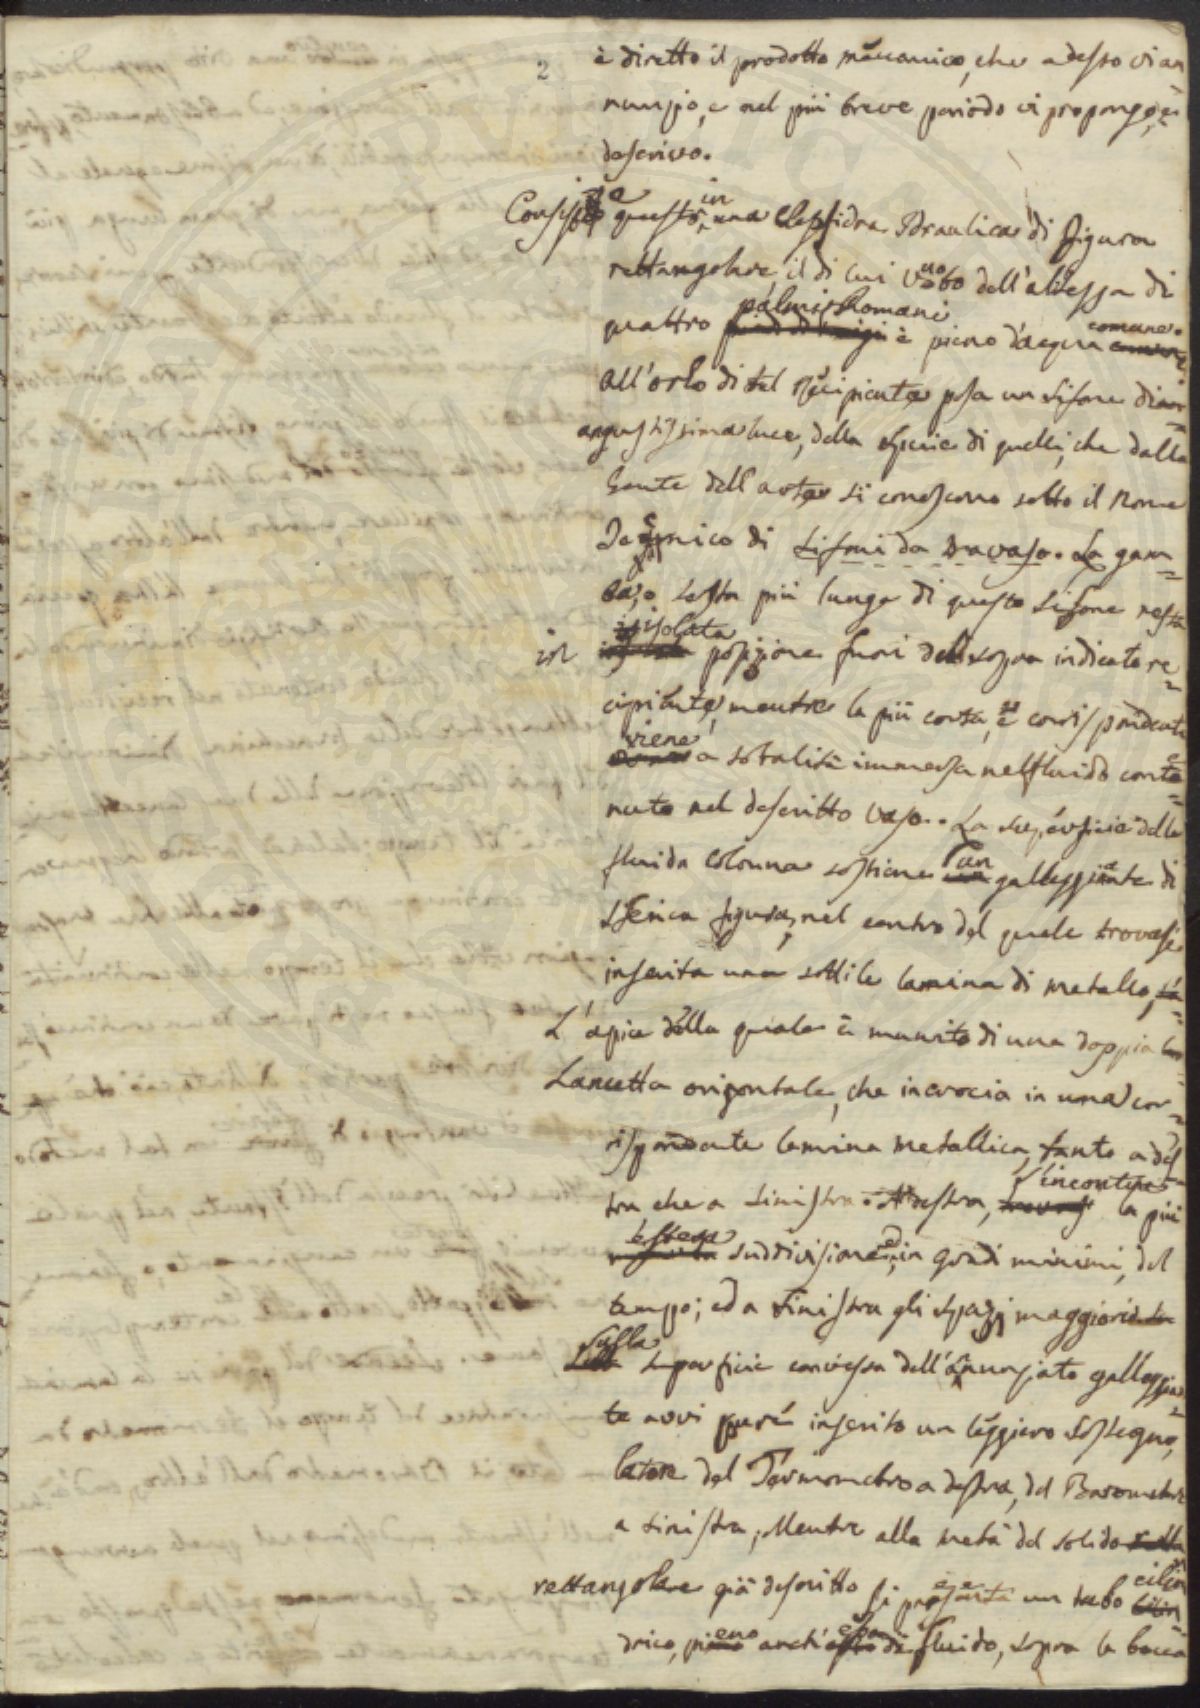 2
è diretto il prodotto meccanico, che adesso vi an=
nunzio, e nel più breve periodo vi propongo, e
descrivo.
Consiste questo in una Clepsidra Idraulica di figura
rettangolare, il di cui vuoto dell'altezza di
quattro palmi Romani è pieno d'acqua comune.
All'orlo di tal recipiente posa un sifone di
angustissima luce, della specie di quelli, che dalla
Gente dell'arte si conoscono sotto il Nome
Tecnico di Sifoni da Travaso. La gam=
ba, o testa più lunga di questo sifone resta
in isolata posizione fuori del sopra indicato re=
cipiente, mentre la più corta, e corrispondente
viene a totalità immersa nel fluido conte=
nuto nel descritto vaso. La superficie della
fluida Colonna sostiene un galleggiante di
sferica figura, nel centro del quale trovasi
inserita una sottile lamina di metallo,
L'apice della quale è munito di una doppia
Lancetta orizontale, che incrocia in una cor=
rispondente lamina metallica, tanto a des=
tra che a sinistra. A destra, incontrasi la più
estesa suddivisione, in gradi minimi, del
tempo; ed a sinistra gli spazj maggiori.
Sulla superficie convessa dell'anunziato galleggian=
te avvi pure inserito un leggiero sostegno,
latore del Termometro a destra, del Barometro
a sinistra; Mentre alla metà del solido
rettangolare già descritto si presenta un tubo cilin=
drico, pieno anch'esso di fluido, sopra la bocca